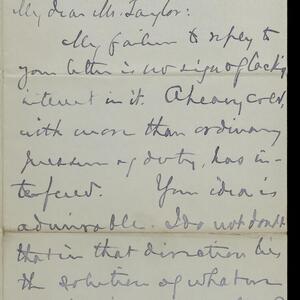 My dear Mr. Taylor:
My failure to reply to
your letter is no sign of lack of
interest in it. A heavy cold,
with more than ordinary
pressure of duty, has in-
terfered. Your idea is
admirable. I do not doubt
that in that direction lies
the solution of what we